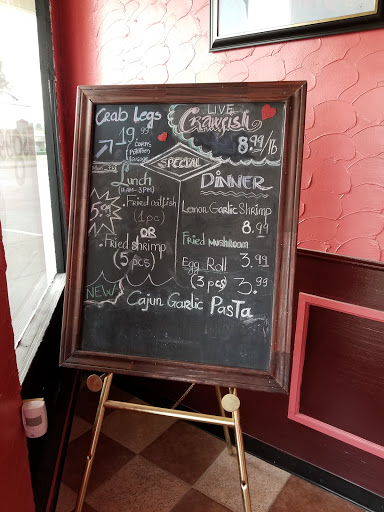 Crab Legs
19.99
corns
potatoes
sausage
LIVE
Crawfish
8.99/lb
SPECIAL
Lunch
(11AM-3PM)
5.99
Fried catfish
(1pc)
OR
Fried shrimp
(5pcs)
DINNER
Lemon Garlic Shrimp
8.99
Fried Mushroom
3.99
Egg Roll
(3pcs) 3.99
NEW
Cajun Garlic Pasta